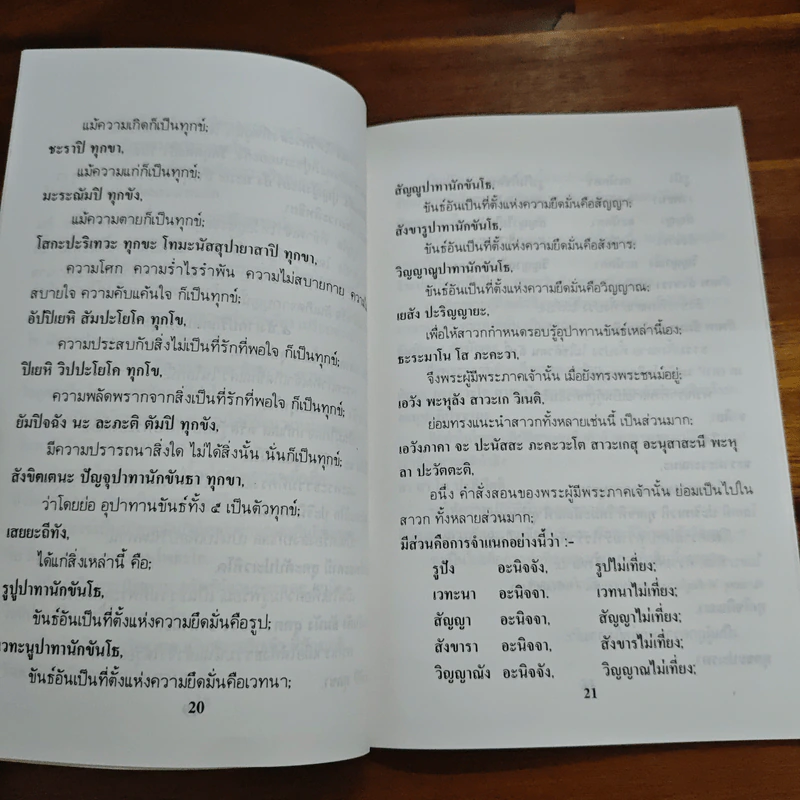 แม้ความเกิดก็เป็นทุกข์;
ชะราปิ ทุกขา,
แม้ความแก่ก็เป็นทุกข์;
มะระณัมปิ ทุกขัง,
แม้ความตายก็เป็นทุกข์;
โสกะปะริเทวะ ทุกขะ โทมะนัสสุปายาสาปิ ทุกขา,
ความโศก ความร่ำไรรำพัน ความไม่สบายกาย
สบายใจ ความคับแค้นใจ ก็เป็นทุกข์;
อัปปิเยหิ สัมปะโยโค ทุกโข,
ความประสบกับสิ่งไม่เป็นที่รักที่พอใจ ก็เป็นทุกข์;
ปิเยหิ วิปปะโยโค ทุกโข,
ความพลัดพรากจากสิ่งเป็นที่รักที่พอใจ ก็เป็นทุกข์;
ยัมปิจฉัง นะ ละภะติ ตัมปิ ทุกขัง,
มีความปรารถนาสิ่งใด ไม่ได้สิ่งนั้น นั่นก็เป็นทุกข์;
สังขิตเตนะ ปัญจุปาทานักขันธา ทุกขา,
ว่าโดยย่อ อุปาทานขันธ์ทั้ง ๕ เป็นตัวทุกข์;
เสยยะถีทัง,
ได้แก่สิ่งเหล่านี้ คือ;
รูปูปาทานักขันโธ,
ขันธ์อันเป็นที่ตั้งแห่งความยึดมั่นคือรูป;
เวทะนูปาทานักขันโธ,
ขันธ์อันเป็นที่ตั้งแห่งความยึดมั่นคือเวทนา;
20
สัญญูปาทานักขันโธ,
ขันธ์อันเป็นที่ตั้งแห่งความยึดมั่นคือสัญญา;
สังขารูปาทานักขันโธ,
ขันธ์อันเป็นที่ตั้งแห่งความยึดมั่นคือสังขาร;
วิญญาณูปาทานักขันโธ,
ขันธ์อันเป็นที่ตั้งแห่งความยึดมั่นคือวิญญาณ;
เยสัง ปะริญญายะ,
เพื่อให้สาวกกำหนดรอบรู้อุปาทานขันธ์เหล่านี้เอง;
ธะระมาโน โส ภะคะวา,
จึงพระผู้มีพระภาคเจ้านั้น เมื่อยังทรงพระชนม์อยู่;
เอวัง พะหุลัง สาวะเก วิเนติ,
ย่อมทรงแนะนำสาวกทั้งหลายเช่นนี้ เป็นส่วนมาก;
เอวังภาคา จะ ปะนัสสะ ภะคะวะโต สาวะเกสุ อะนุสาสะนี พะหุ
ลา ปะวัตตะติ,
อนึ่ง คำสั่งสอนของพระผู้มีพระภาคเจ้านั้น ย่อมเป็นไปใน
สาวก ทั้งหลายส่วนมาก;
มีส่วนคือการจำแนกอย่างนี้ว่า :-
รูปัง อะนิจจัง, รูปไม่เที่ยง;
เวทะนา อะนิจจา, เวทนาไม่เที่ยง;
สัญญา อะนิจจา, สัญญาไม่เที่ยง;
สังขารา อะนิจจา, สังขารไม่เที่ยง;
วิญญาณัง อะนิจจัง, วิญญาณไม่เที่ยง;
21